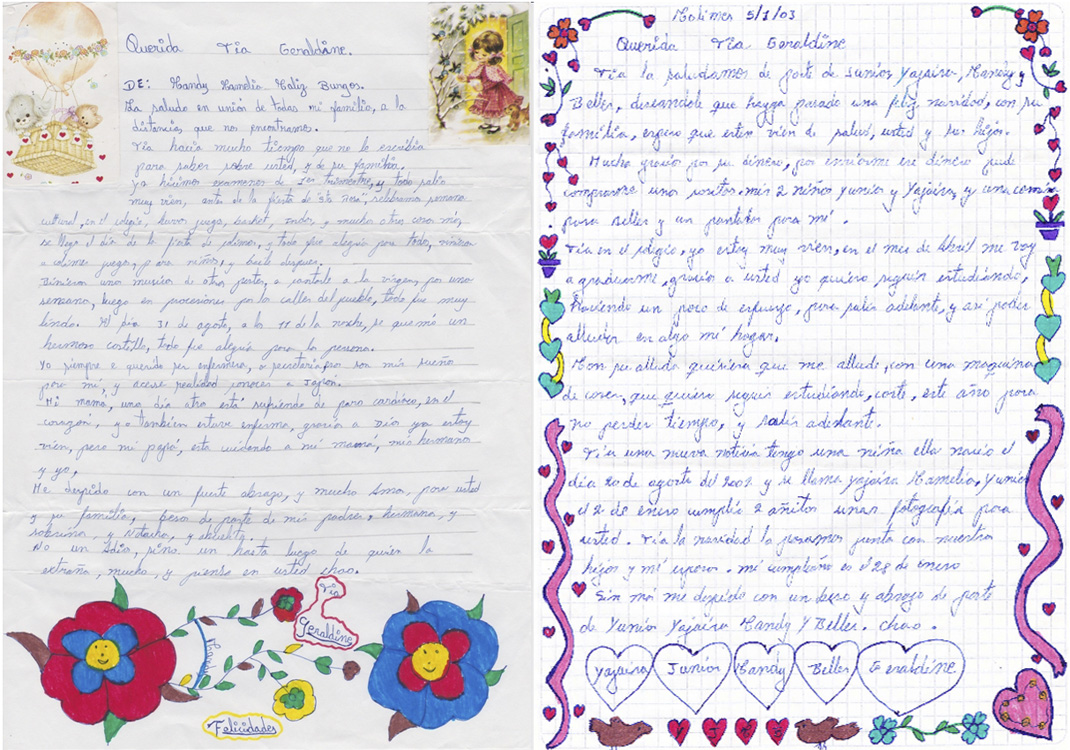 Querida Tia Geraldine.
DE: Handy Hamelia Caliz Burgos.
La saludo en unión de todas mi familia, a la
distancia, que nos encontramos.
Tia hacia mucho tiempo que no le escribia
para saber sobre usted, y de su familia.
ya hicimos examenes de 1er trimestre, y todo salio
muy vien, antes de la fiesta de Sta Rosa, selebramos semana
cultural, en el colegio, huvos juego, basket, indor, y mucha otras cosas más,
se llego el dia de la fiesta de , y todo fue alegria para todos, vinieron
a juegos, para niños, y baile despues.
Binieron unos musicos de otras partes, a cantarle a la virgen, por una
semana, luego en procesiones por las calles del pueblo, todo fue muy
lindo. El día 31 de agosto, a las 11 de la noche, se quemó un
hermoso castillo, todo fue alegria para la persona.
Yo siempre e querido ser enfermera, o secretaria, son mis sueño
para mí, y acerse realidad conocer a Japon.
Mi mama, uno dia atra está sufriendo de paro cardiaco, en el
corazón, yo Tambien estuve enferma, gracia a Dios ya estoy
vien, pero mi papá, esta cuidando a mi mamá, mis hermano
y yo,
Me despido con un fuerte abrazo, y mucho Amor, para usted
y su familia, besos de parte de mis padres, hermana, y
sobrina, y Natacha, y abuelita.
No un Adio, sino un hasta luego de quien la
extraña, mucho, y piensa en usted chao.
Tia
Geraldine
Felicidades
Colimes 5/1/03
Querida Tia Geraldine
Tia la saludamos de parte de Junior Yajaira, Handy y
Beller, deseandole que hayga pasado una feliz navidad, con su
familia, espero que esten vien de salud, usted y sus hijos.
Mucha gracias por su dinero, por enviarme ese dinero pude
comprarme unos positos mis 2 niños yunior y Yajaira, y una camisa
para Beller y un pantalon para mí.
Tia en el colegio, yo estoy muy vien, en el mes de Abril me voy
a graduarme, gracia a usted yo quiero seguir estudiando,
Haciendo un poco de esfuerzo, para salir adelante, y asi poder
alludar en algo mi hogar.
Con su alluda quisiera que me allude, con una maquina
de coser, que quiero seguir estudiando, corte, este año para
no perder tiempo, y salir adelante.
Tia una nueva noticia tengo una niña ella nacio el
dia 20 de agosto del 2002 y se llama yajaira Hamelia, Yunior
el 2 de enero cumplio 2 añitos unas fotografia para
usted. Tia la navidad la pasamos junta con nuestro
hijos y mí esposo. mi cumpleaño es el 28 de enero
Sin más me despido con un beso y abrazo de parte
de Yunior Yajaira Handy Y Beller. chao.
Yajaira Junior Handy Beller Geraldine